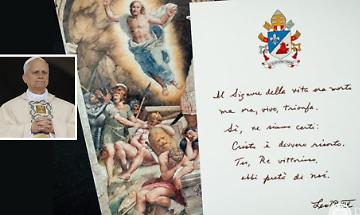 Il Signore della vita era morto
ma ora, vivo, trionfa.
Sì, ne siamo certi:
Cristo è davvero risorto.
Tu, Re vittorioso,
abbi pietà di noi.
Leo PP. XIV